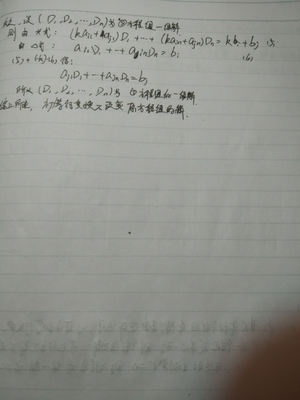 反之, 设 (D₁, D₂, ..., Dₙ) 为 ⑤ 方程组一组解
则由 式: (kaᵢ₁+aⱼ₁)D₁+…+(kaᵢₙ+aⱼₙ)Dₙ=kbᵢ+bⱼ (5)
由 式: aᵢ₁D₁+…+aᵢₙDₙ=bᵢ (6)
得:
aⱼ₁D₁+…+aⱼₙDₙ=bⱼ
所以 (D₁, D₂, ..., Dₙ) 为 方程组的一组解
综上所述, 初等行变换不改变 方程组的解.